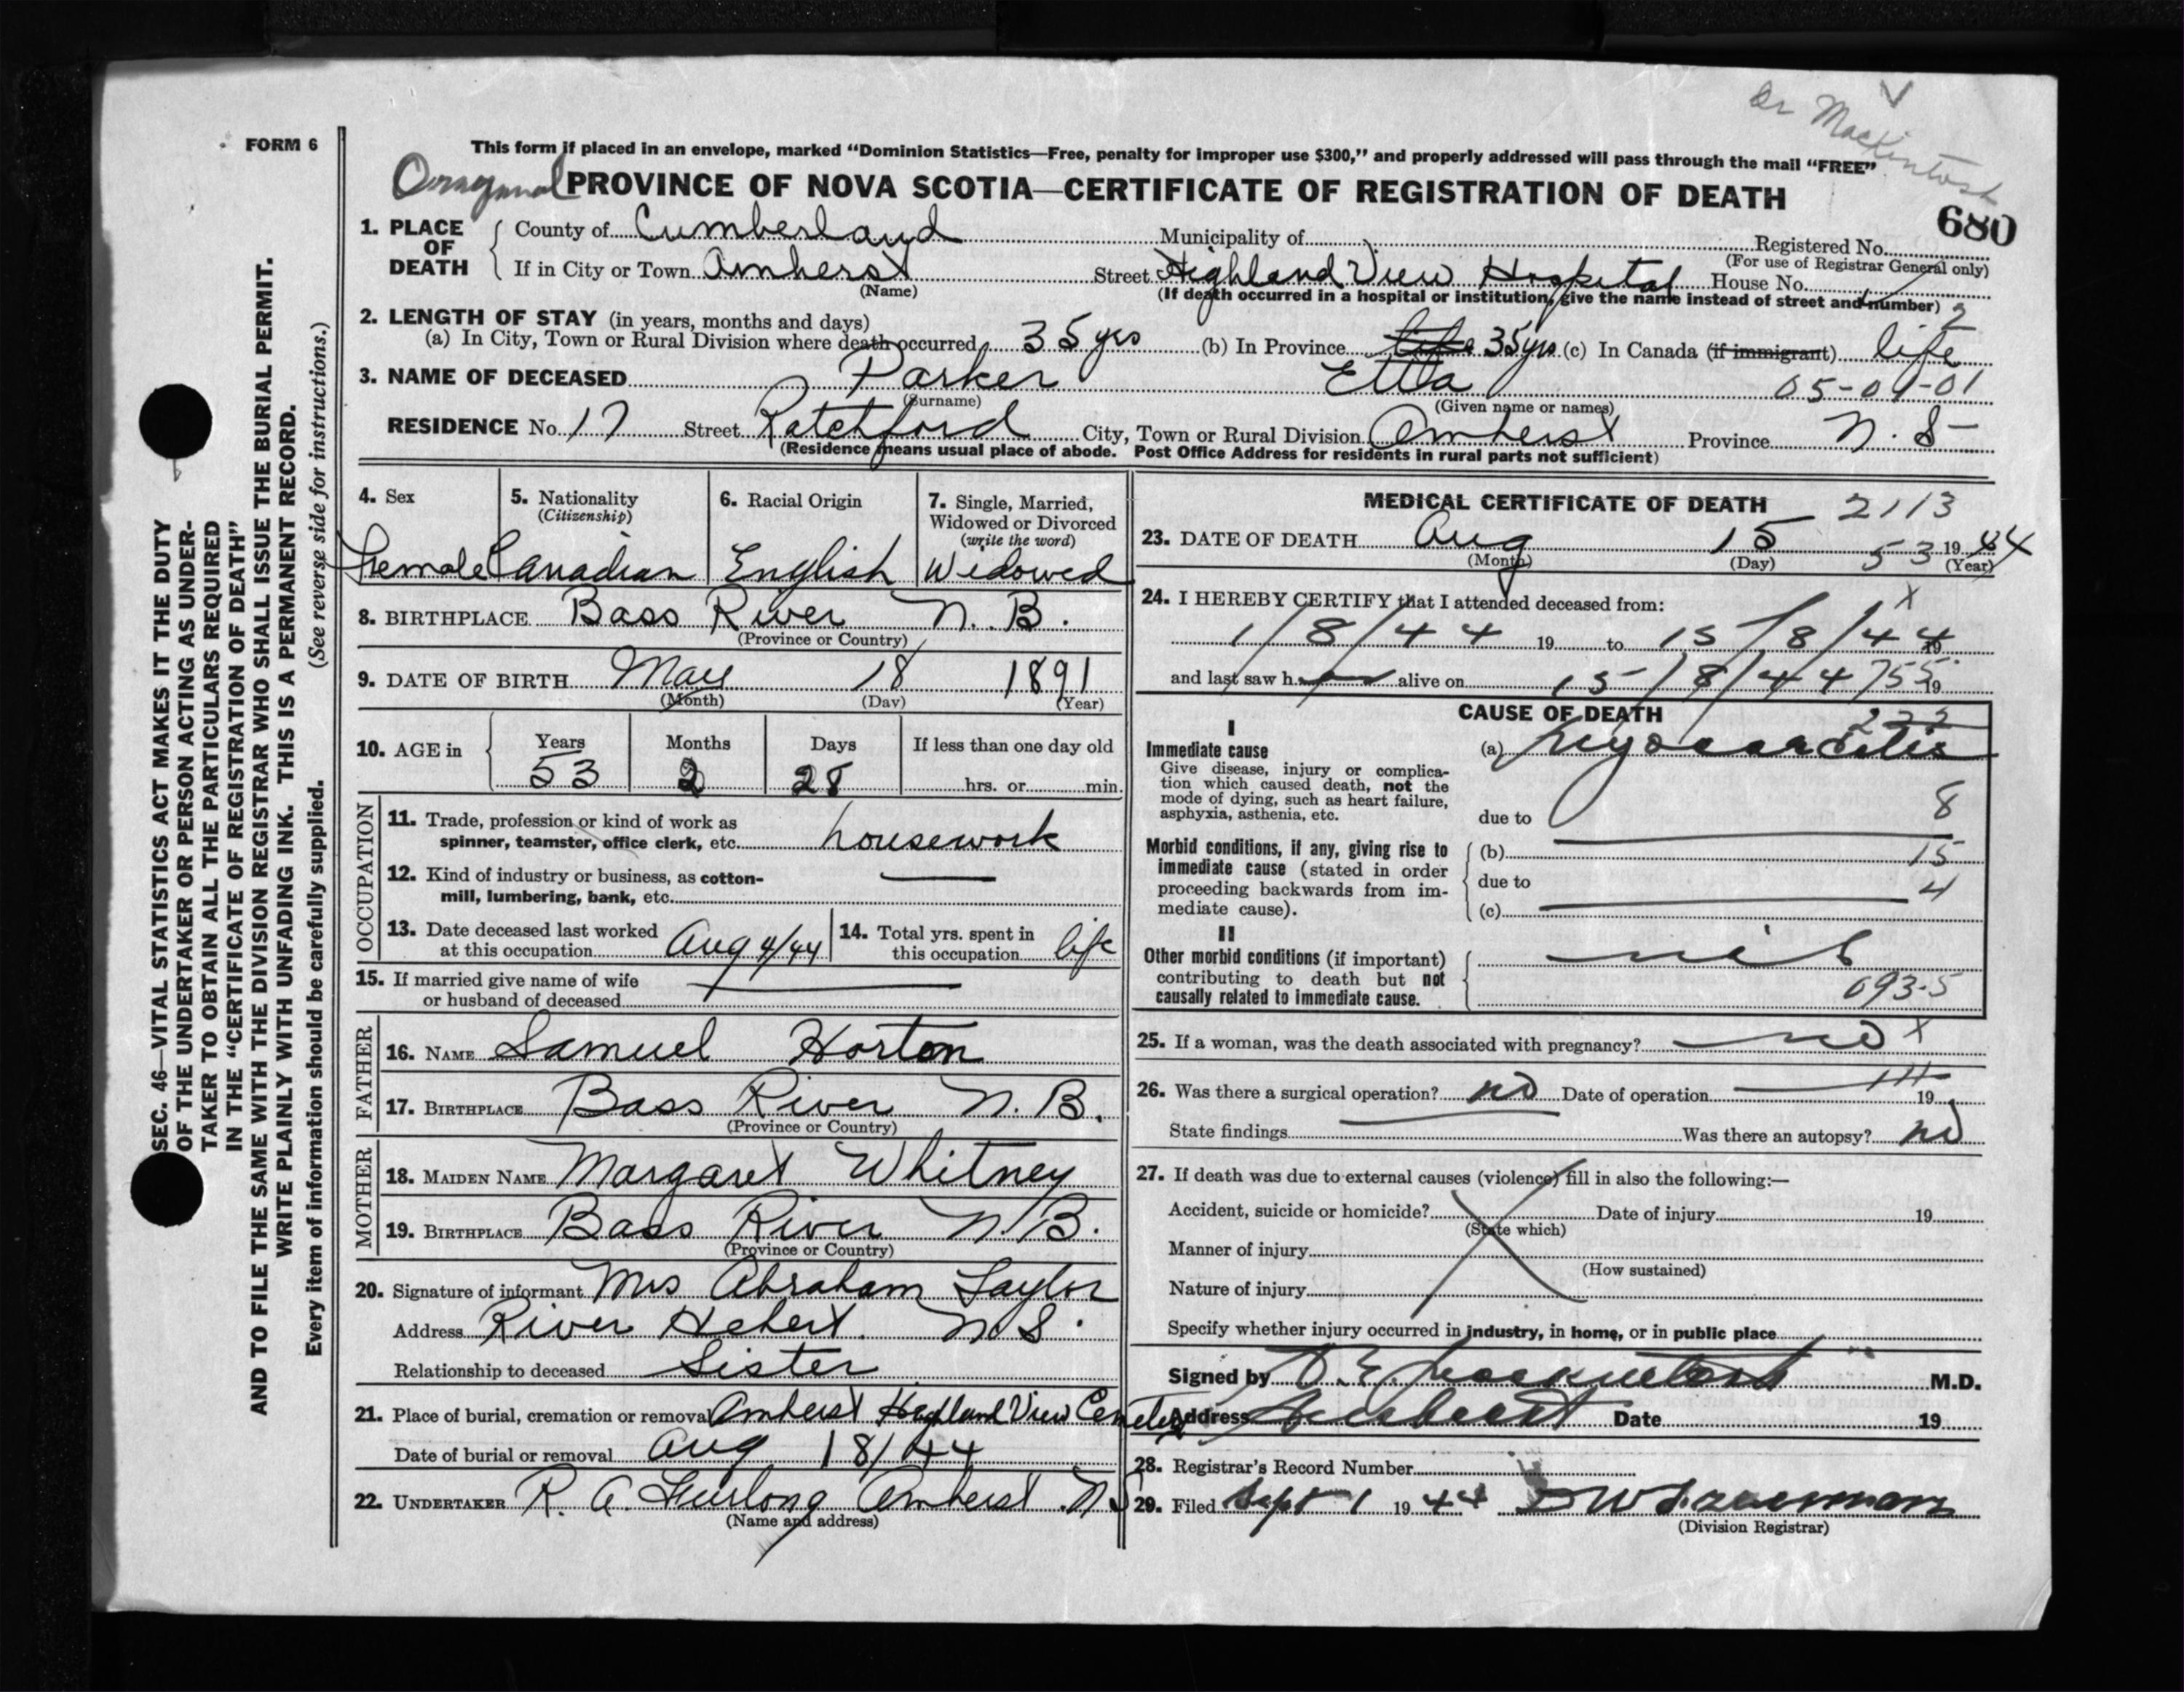 Dr MacKintosh
FORM 6
This form if placed in an envelope, marked "Dominion Statistics—Free, penalty for improper use $300," and properly addressed will pass through the mail "FREE"
PROVINCE OF NOVA SCOTIA—CERTIFICATE OF REGISTRATION OF DEATH
680
1. PLACE OF DEATH
County of Cumberland Municipality of Registered No.
(For use of Registrar General only)
If in City or Town Amherst Street Highland View Hospital House No.
(Name) (If death occurred in a hospital or institution, give the name instead of street and number)
2. LENGTH OF STAY (in years, months and days) 2
(a) In City, Town or Rural Division where death occurred 35 yrs (b) In Province life 35 yrs (c) In Canada (if immigrant) life
3. NAME OF DECEASED Parker Etta 05-01-01
(Surname) (Given name or names)
RESIDENCE No. 17 Street Ratchford City, Town or Rural Division Amherst Province N. S-
(Residence means usual place of abode. Post Office Address for residents in rural parts not sufficient)
4. Sex
Female
5. Nationality
(Citizenship)
Canadian
6. Racial Origin
English
7. Single, Married,
Widowed or Divorced
(write the word)
Widowed
8. BIRTHPLACE Bass River N. B.
(Province or Country)
9. DATE OF BIRTH May 18 1891
(Month) (Day) (Year)
10. AGE in Years Months Days If less than one day old
53 2 28 hrs. or min.
OCCUPATION
11. Trade, profession or kind of work as
spinner, teamster, office clerk, etc. housework
12. Kind of industry or business, as cotton-
mill, lumbering, bank, etc.
13. Date deceased last worked
at this occupation Aug 4/44
14. Total yrs. spent in
this occupation life
15. If married give name of wife
or husband of deceased
FATHER
16. NAME Samuel Horton
17. BIRTHPLACE Bass River N. B.
(Province or Country)
MOTHER
18. MAIDEN NAME Margaret Whitney
19. BIRTHPLACE Bass River N. B.
(Province or Country)
20. Signature of informant Mrs Abraham Taylor
Address River Hebert. N S.
Relationship to deceased Sister
21. Place of burial, cremation or removal Amherst Highland View Cemetery
Date of burial or removal Aug 18/44
22. UNDERTAKER R. A. Furlong Amherst. N S
(Name and address)
MEDICAL CERTIFICATE OF DEATH 2113
23. DATE OF DEATH Aug 15 53 19 44
(Month) (Day) (Year)
24. I HEREBY CERTIFY that I attended deceased from: x
1/8/44 19 to 15/8/44 19
and last saw her alive on 15/8/44 755 19
CAUSE OF DEATH 222
I
Immediate cause
Give disease, injury or complica-
tion which caused death, not the
mode of dying, such as heart failure,
asphyxia, asthenia, etc.
(a) Myocarditis
8
due to
Morbid conditions, if any, giving rise to
immediate cause (stated in order
proceeding backwards from im-
mediate cause).
(b) 15
due to 4
(c)
II
Other morbid conditions (if important)
contributing to death but not
causally related to immediate cause.
nil
093-5
25. If a woman, was the death associated with pregnancy? no x
26. Was there a surgical operation? no Date of operation 19
State findings Was there an autopsy? no
27. If death was due to external causes (violence) fill in also the following:—
Accident, suicide or homicide? Date of injury 19
(State which)
Manner of injury
(How sustained)
Nature of injury
Specify whether injury occurred in industry, in home, or in public place
Signed by D. E. Mackintosh M.D.
Address Amherst Date 19
28. Registrar's Record Number
29. Filed Sept 1 19 44
(Division Registrar)
SEC. 46—VITAL STATISTICS ACT MAKES IT THE DUTY
OF THE UNDERTAKER OR PERSON ACTING AS UNDER-
TAKER TO OBTAIN ALL THE PARTICULARS REQUIRED
IN THE "CERTIFICATE OF REGISTRATION OF DEATH"
AND TO FILE THE SAME WITH THE DIVISION REGISTRAR WHO SHALL ISSUE THE BURIAL PERMIT.
WRITE PLAINLY WITH UNFADING INK. THIS IS A PERMANENT RECORD.
Every item of information should be carefully supplied. (See reverse side for instructions.)